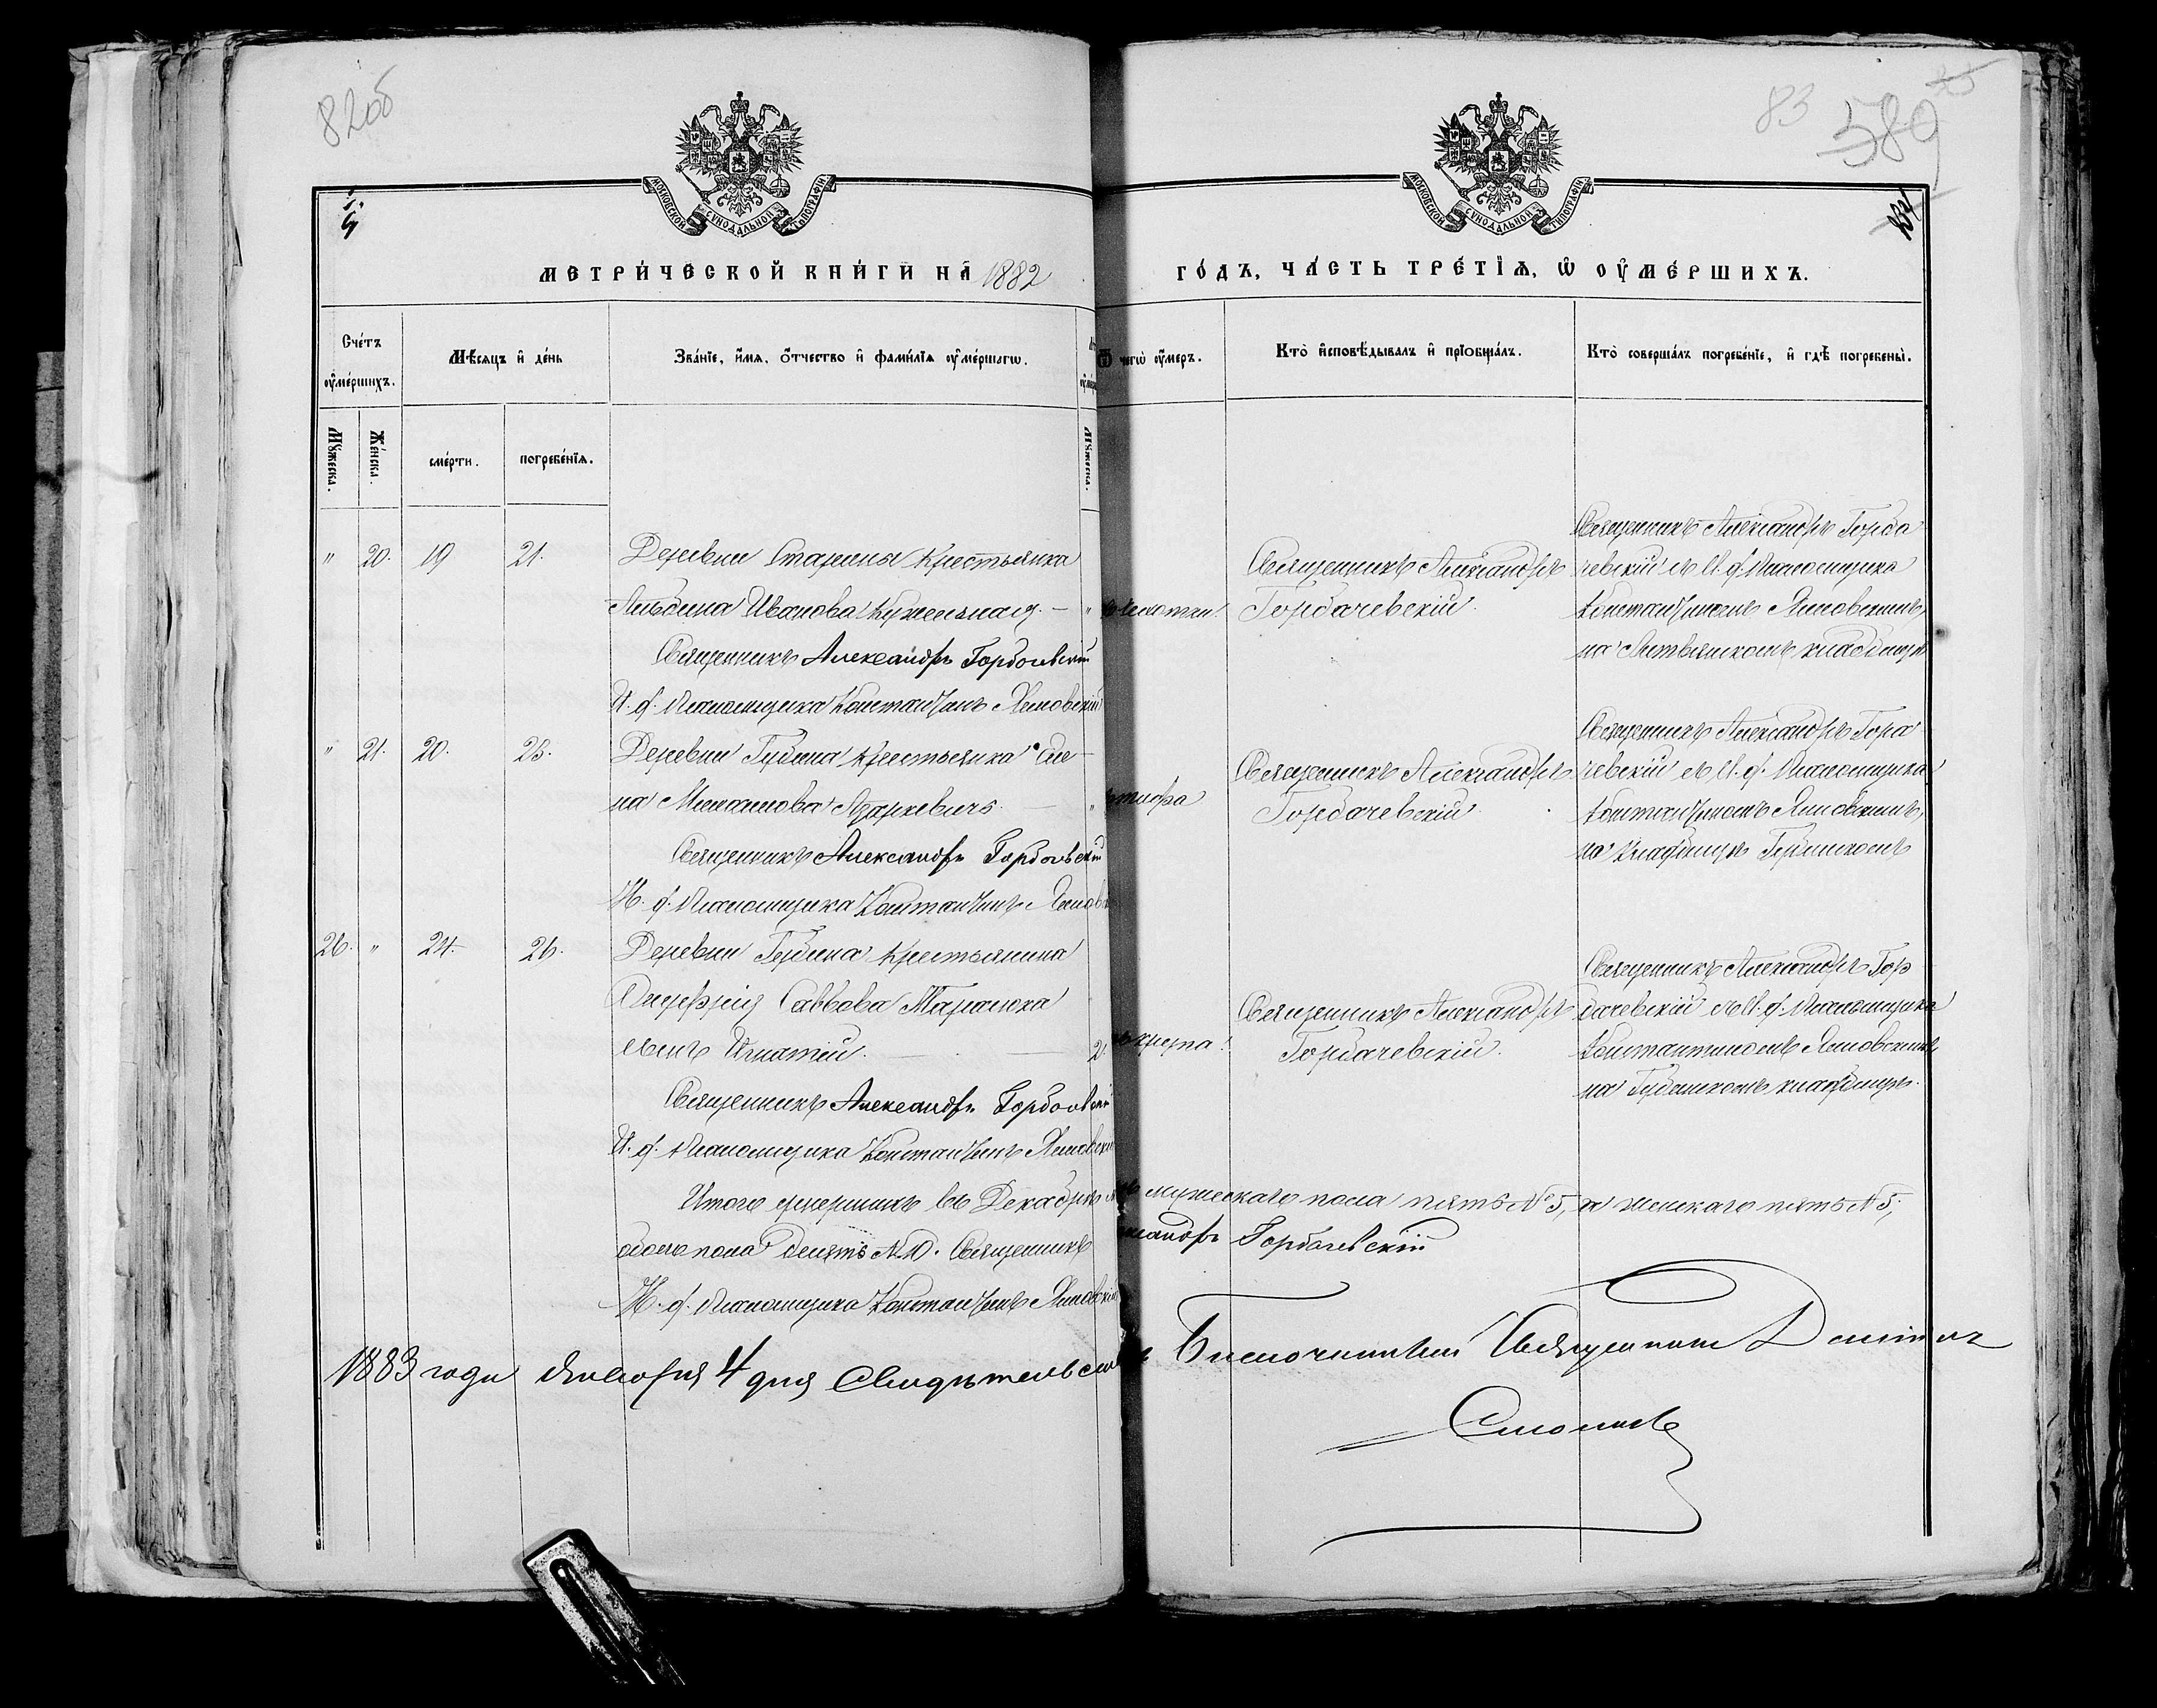 82об
83
589
МОСКОВСКОЙ СѴНОДАЛЬНОЙ ТИПОГРАФІИ
МОСКОВСКОЙ СѴНОДАЛЬНОЙ ТИПОГРАФІИ
МЕТРИЧЕСКОЙ КНИГИ НА 1882 ГОДЪ, ЧАСТЬ ТРЕТІѦ, Ѡ ОУМЕРШИХЪ.
Счетъ оумершихъ.
Мѣсяцъ и день
Званіе, имя, отчество и фамилія оумершагѡ.
Ѿ чегѡ оумеръ.
Кто исповѣдывалъ и пріобщалъ.
Кто совершалъ погребеніе, и гдѣ погребены.
Мꙋжеска.
Женска.
смерти.
погребенія.
Мꙋжеска.
" 20. 19 21.
Деревни Старины крестьянка
Иванова
Священникъ Александръ Горбачевскій
И. д. Псаломщика Константинъ Яновскій
Священникъ Александръ
Горбачевскій.
Священникъ Александръ Горба
чевскій съ И. д. Псаломщика
Константиномъ Яновскимъ,
на кладбищѣ
" 21. 20. 23.
Деревни Губина крестьянка Еле-
на Азаревичъ.
Священникъ Александръ Горбачевскій
И. д. Псаломщика Константинъ
тифа
Священникъ Александръ
Горбачевскій.
Священникъ Александръ Горба
чевскій съ И. д. Псаломщика
Константиномъ Яновскимъ,
на кладбищѣ Губинскомъ
26. " 24. 26.
Деревни Губина крестьянина
Онуфрія Саввова Таранюка
сынъ Игнатій.
2.
Священникъ Александръ Горбачевскій
И. д. Псаломщика Константинъ
крупа.
Священникъ Александръ
Горбачевскій.
Священникъ Александръ Гор
бачевскій съ И. д. Псаломщика
Константиномъ Яновскимъ
на Губинскомъ кладбищѣ.
Итого умершихъ въ Декабрѣ мужескаго пола пять № 5, и женскаго пять № 5,
обоего пола десять № 10. Священникъ Александръ Горбачевскій
И. д. Псаломщика Константинъ Яновскій
1883 года Января 4 дня Благочинный Священникъ